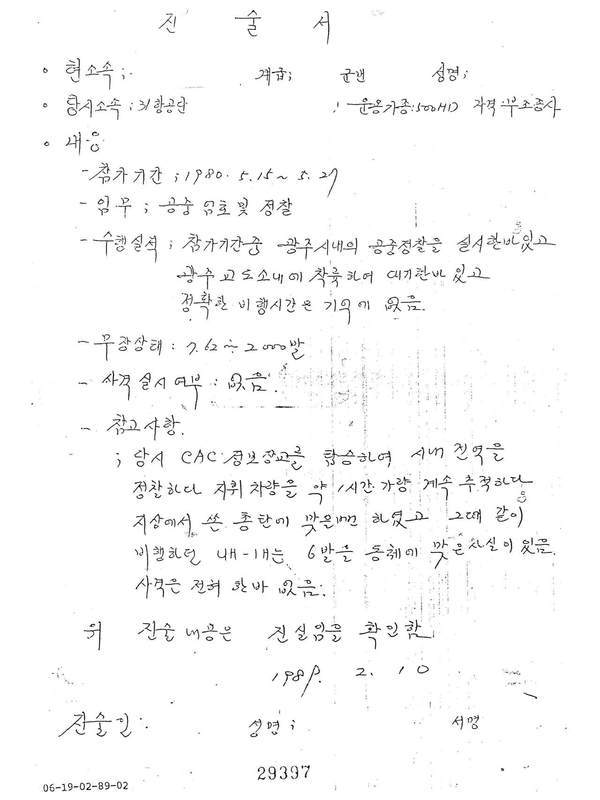 진 술 서
· 현소속 ; 계급; 군번 성명;
· 당시소속 ; 31항공단 ; 운용기종:500MD 자격:부조종사
· 내용
- 참가기간 ; 1980. 5.15 ~ 5.27
- 임무 ; 공중 엄호 및 정찰
- 수행실적 ; 참가기간중 광주시내의 공중정찰을 실시한바 있고
광주 교도소내에 착륙하여 대기한바 있고
정확한 비행시간은 기억에 없음.
- 무장상태 : 7.62 2000발
- 사격 실시 여부 : 없음.
- 참고사항.
; 당시 CAC 정보장교를 탑승하여 시내 전역을
정찰하다 지휘 차량을 약 1시간 가량 계속 추적하다
지상에서 쏜 총탄에 맞을뻔 하였고 그때 같이
비행하던 6발을 동체에 맞은 사실이 있음.
사격은 전혀 한바 없음.
위 진술 내용은 진실임을 확인함
1989. 2. 10
진술인: 성명 ; 서명
29397
06-19-02-89-02